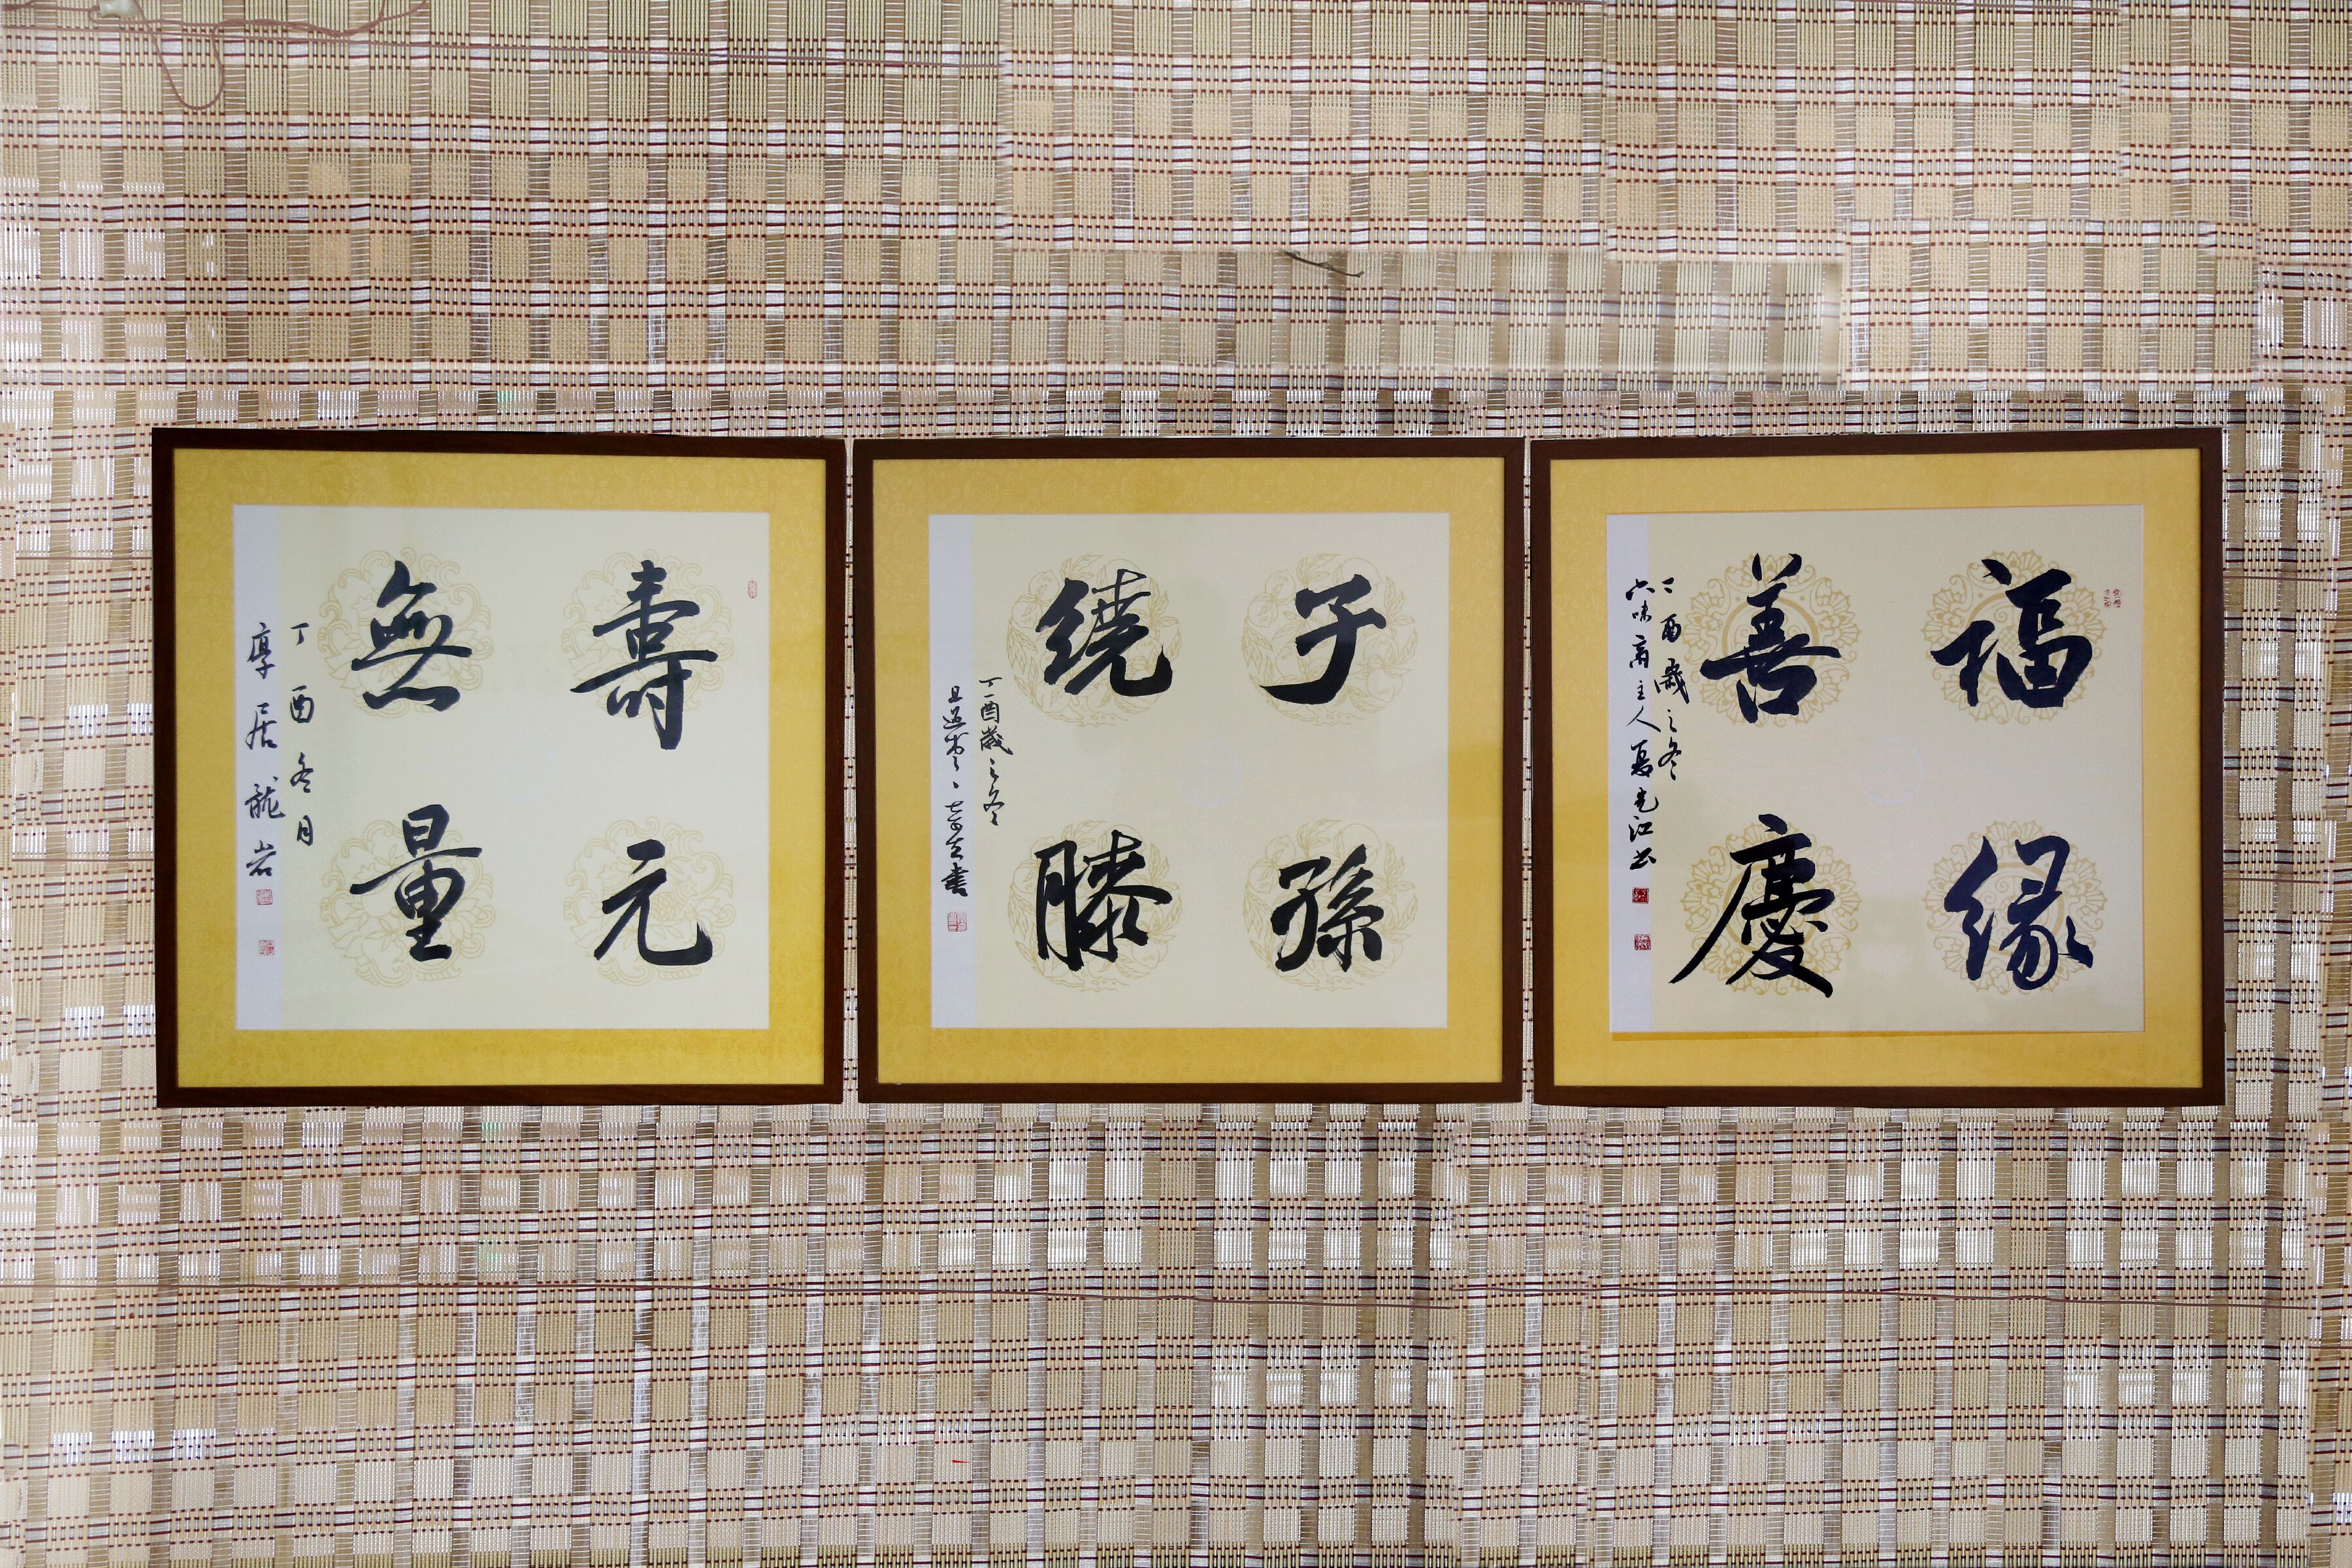 福緣
善慶
丁酉歲之冬
六味齋主人夏先江书
子孫
繞膝
丁酉歲之冬
壽元
無量
丁酉冬月
厚居龍岩